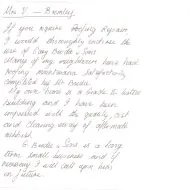 Mrs V — Bromley
If you require Roofing Repairs
I would thoroughly endorse the
use of Gary Brodie & Sons
Many of my neighbours have had
roofing maintenance satisfactorily
completed by Mr Brodie.
My own home is a Grade II listed
building and I have been
impressed with the quality, cost
and clearing away of aftermath
rubbish.
G Brodie & Sons is a long
term small business and if
necessary I will call upon him
in future